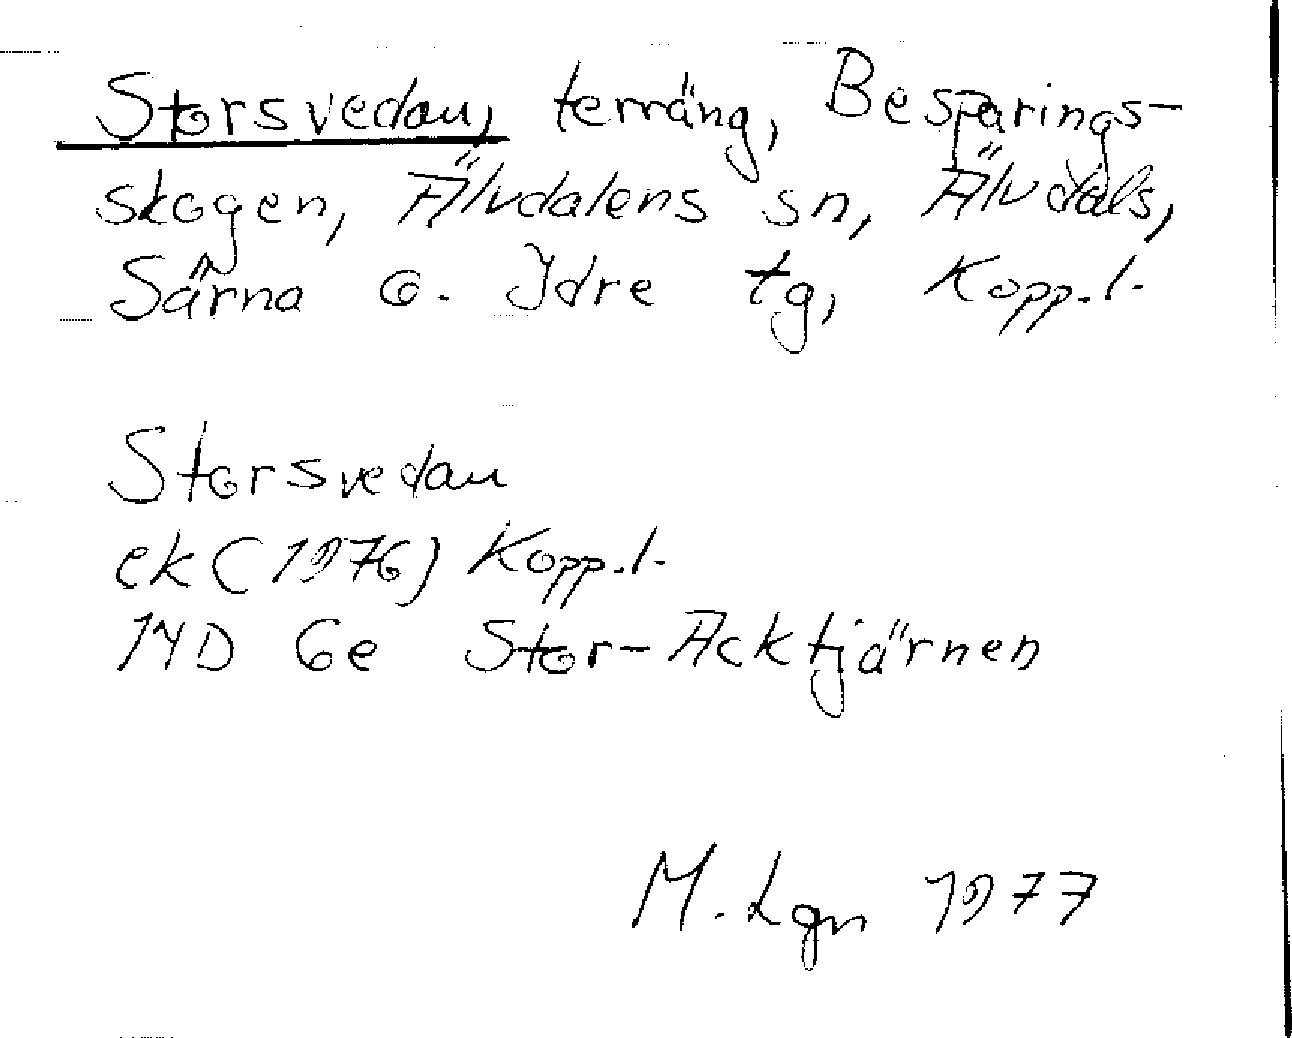 Storsvedan, terräng, Besparings-
skogen, Älvdalens sn, Älvdals,
Särna o. Idre tg, Kopp.l.
Storsvedan
ek (1976) Kopp.l.
14D 6e Stor-Acktjärnen
M. Lgn 1977